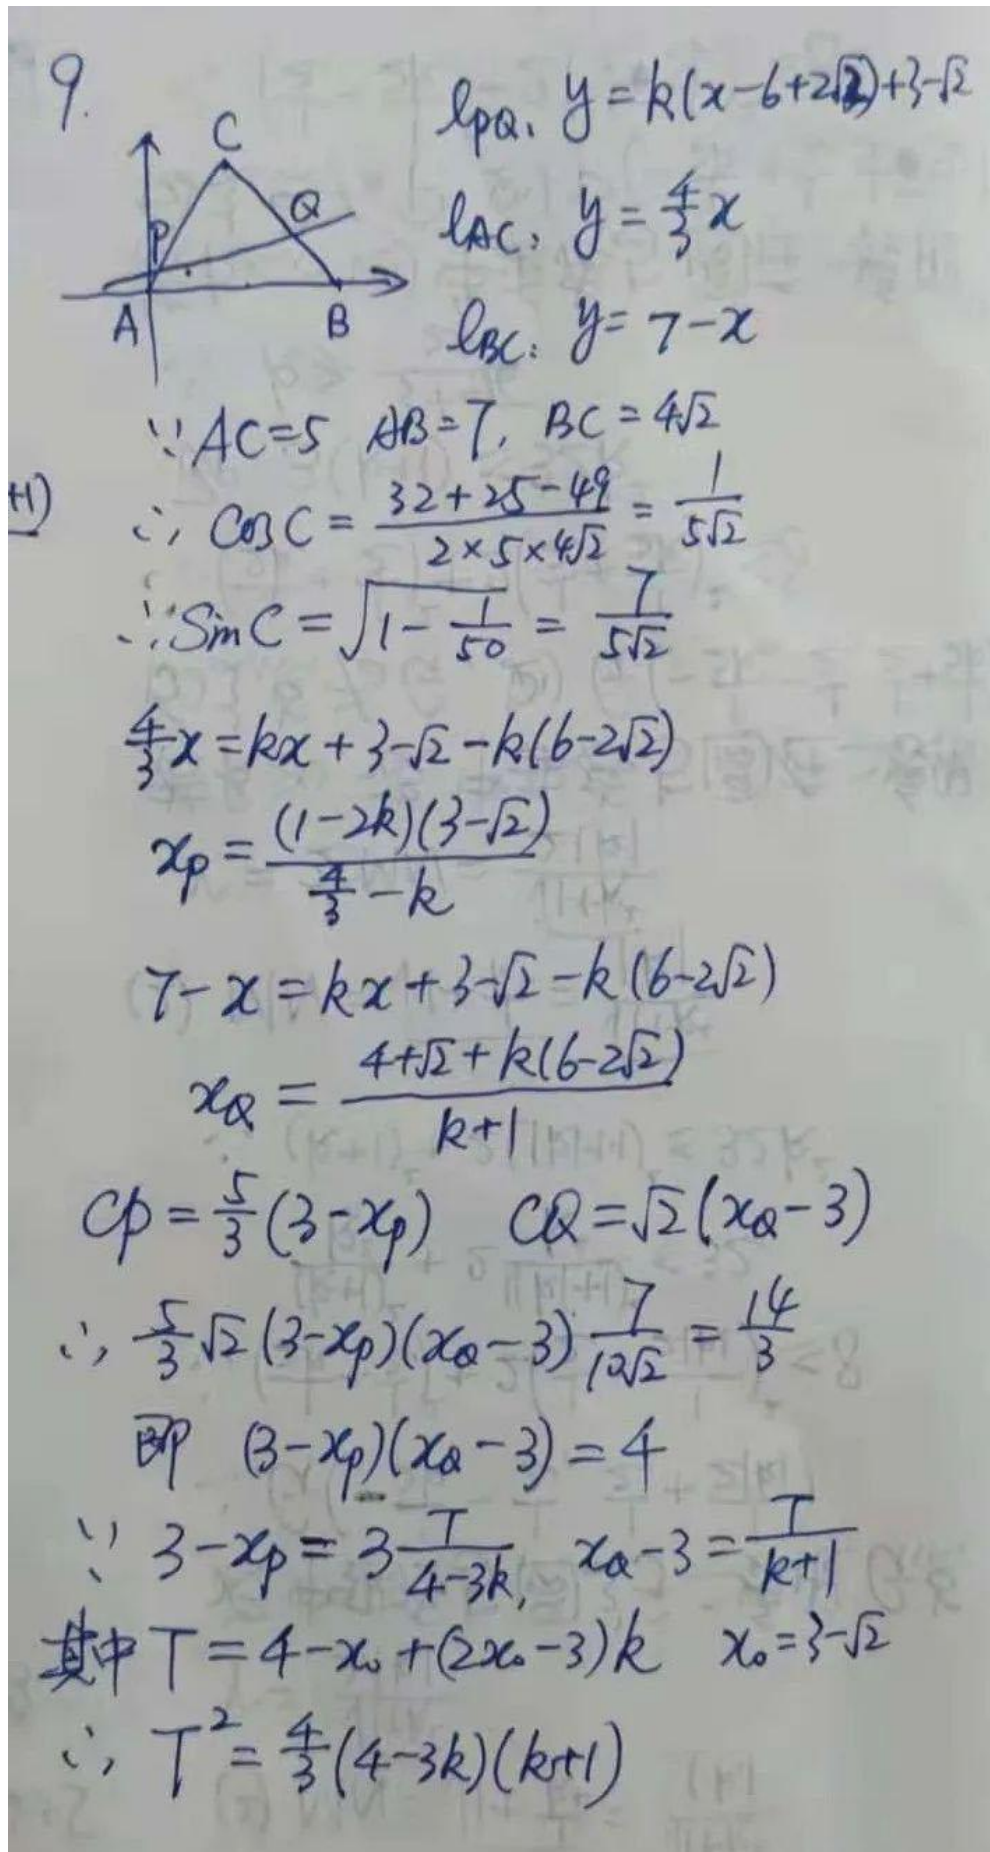 9.
C
P
Q
A
B
l_{PQ}: y = k(x-6+2√2)+3-√2
l_{AC}: y = \frac{4}{3}x
l_{BC}: y = 7-x
∵ AC=5 AB=7, BC=4√2
+1)
∴ cosC = \frac{32+25-49}{2×5×4√2} = \frac{1}{5√2}
∴ SinC = \sqrt{1-\frac{1}{50}} = \frac{7}{5√2}
\frac{4}{3}x = kx+3-√2-k(6-2√2)
x_P = \frac{(1-2k)(3-√2)}{\frac{4}{3}-k}
7-x = kx+3-√2-k(6-2√2)
x_Q = \frac{4+√2+k(6-2√2)}{k+1}
CP = \frac{5}{3}(3-x_P) CQ = √2(x_Q-3)
∴ \frac{5}{3}√2(3-x_P)(x_Q-3)\frac{7}{10√2} = \frac{14}{3}
即 (3-x_P)(x_Q-3) = 4
∵ 3-x_P = 3\frac{T}{4-3k}, x_Q-3 = \frac{T}{k+1}
其中 T = 4-x_0+(2x_0-3)k x_0 = 3-√2
∴ T^2 = \frac{4}{3}(4-3k)(k+1)